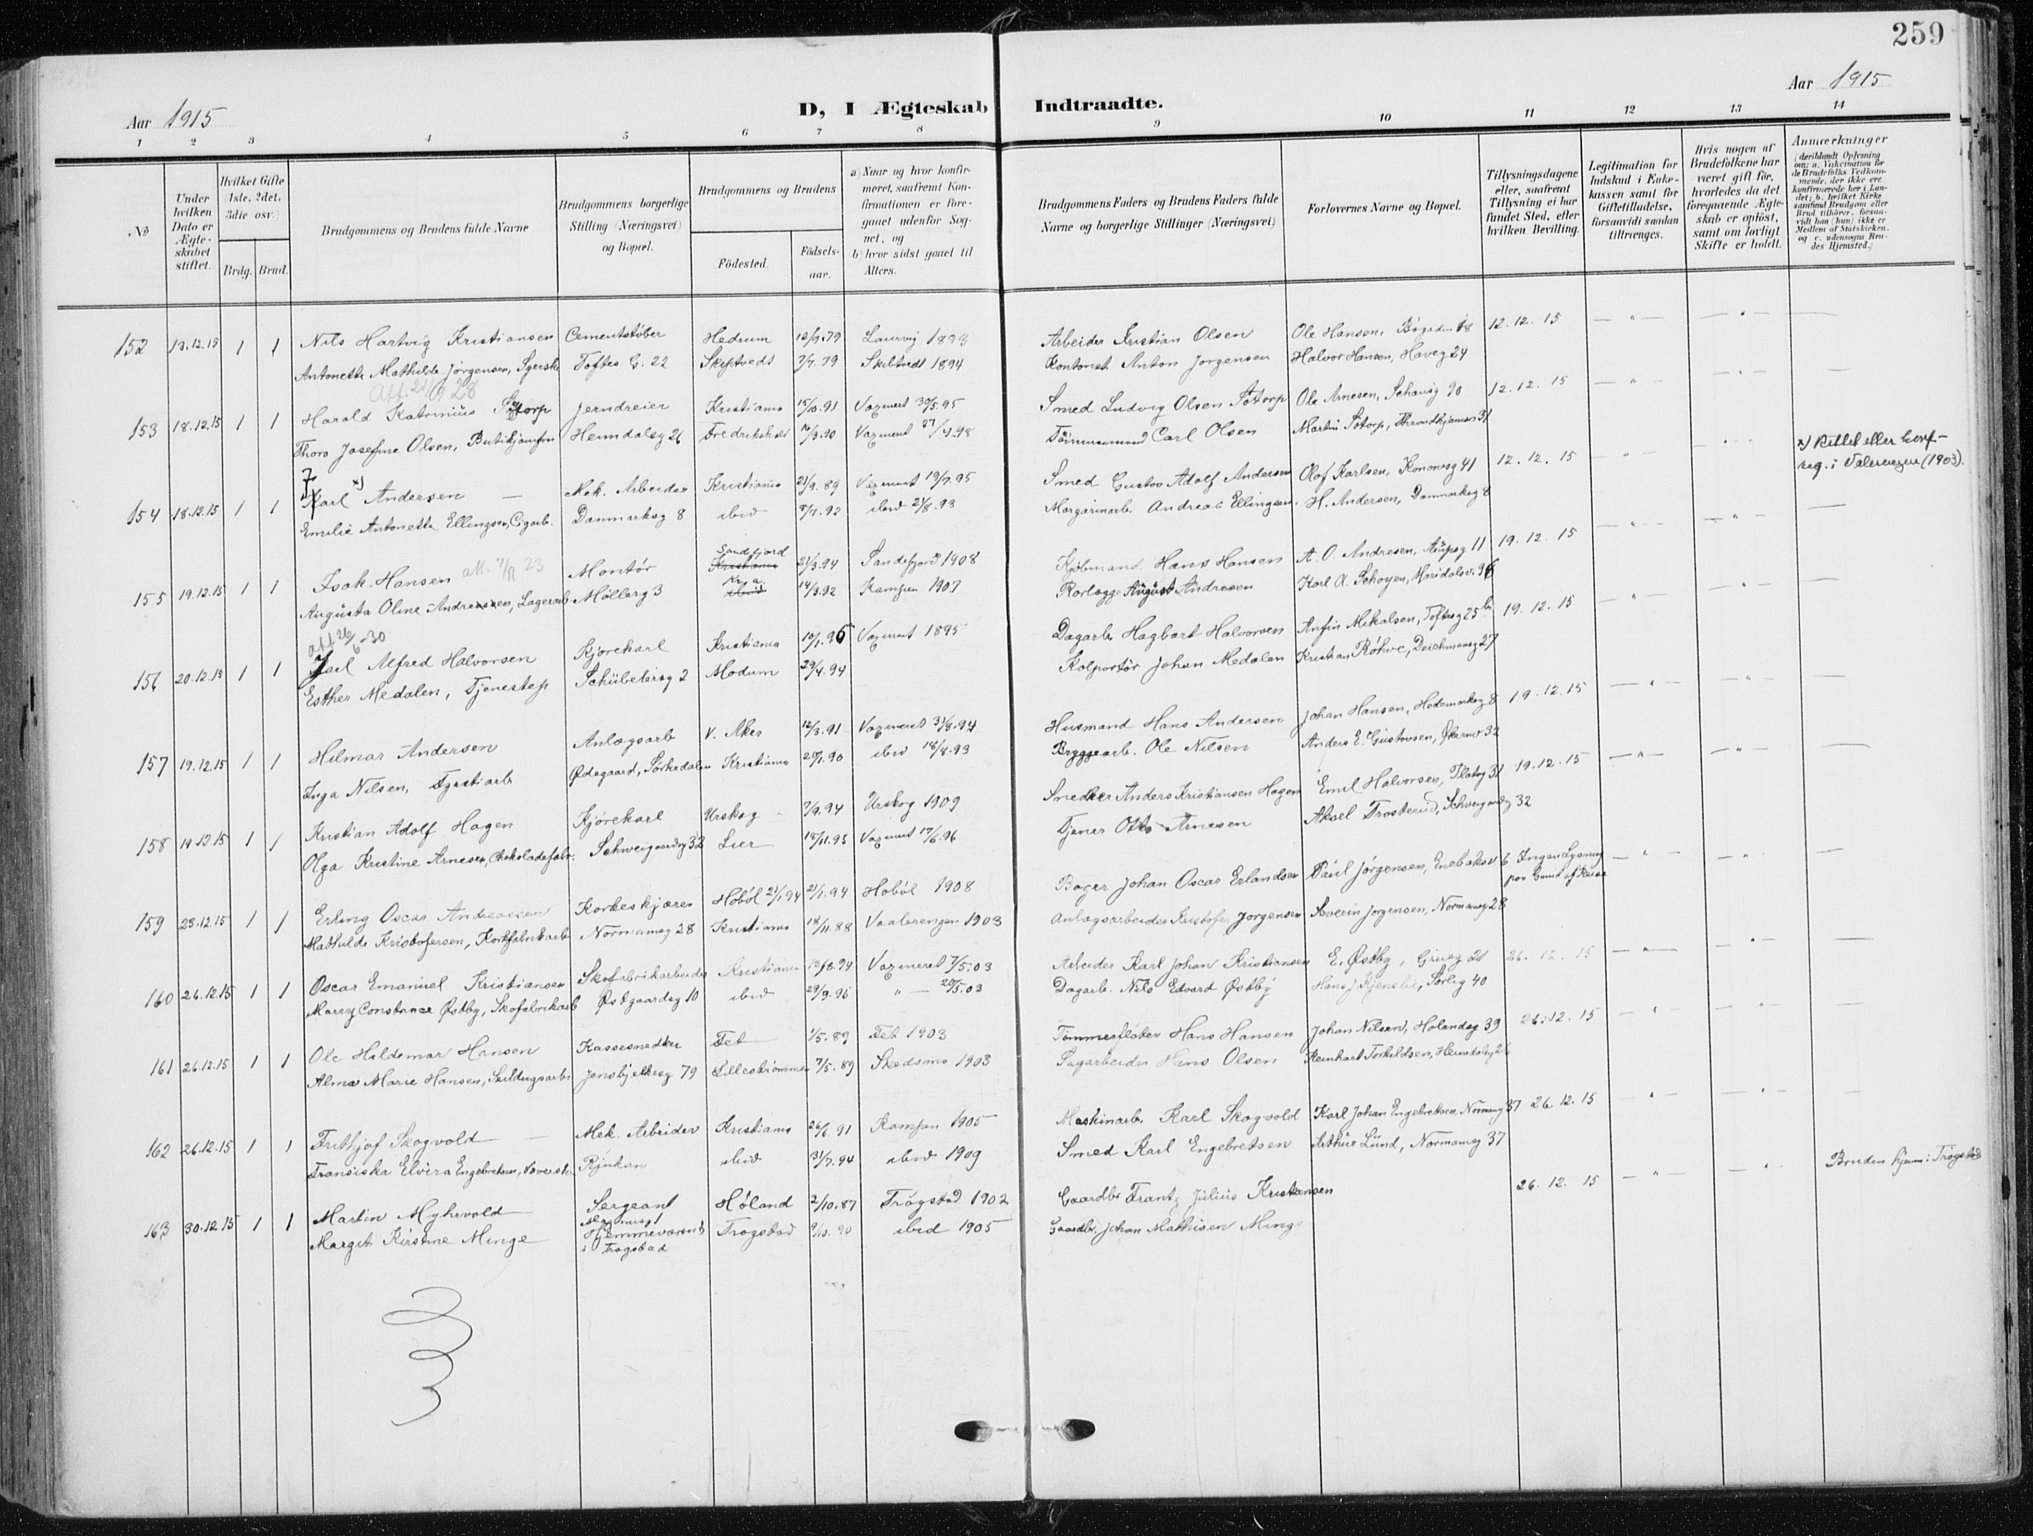 259
Aar 1915
D, I Ægteskab Indtraadte.
Aar 1915
1 2 3 4 5 6 7 8 9 10 11 12 13 14
No
Under hvilken Dato er Ægte-skabet stiftet.
Hvilket Gifte 1ste, 2det, 3die osv.
Brdg. Brud.
Brudgommens og Brudens fulde Navne
Brudgommens borgerlige Stilling (Næringsvei) og Bopæl.
Brudgommens og Brudens
Födested.
Födsels-aar.
a) Naar og hvor konfir-meret, saafremt Kon-firmationen er fore-gaaet udenfor Sog-net, og
b) hvor sidst gaaet til Alters.
Brudgommens Faders og Brudens Faders fulde Navne og borgerlige Stillinger (Næringsvei)
Forlovernes Navne og Bopæl.
Tillysningsdagene eller, saafremt Tillysning ei har fundet Sted, efter hvilken Bevilling.
Legitimation for Indskud i Enke-kassen samt for Giftetilladelse, forsaavidt saadan tiltrænges.
Hvis nogen af Brudefolkene har været gift för, hvorledes da det foregaaende Ægte-skab er oplöst, samt om lovligt Skifte er holdt.
Anmærkninger
(deriblandt Oplysning om: a. Vakcination for de Brudefolks Vedkom-mende, der ikke ere konfirmerede her i Lan-det; b. hvilket Kirke-samfund Brudgom eller Brud tilhörer, forsaa-vidt han (hun) ikke er Medlem af Statskirken, og c. udensogns Bru-des Hjemsted.)
152 13.12.15 1 1 Nils Hartvig Kristiansen Cementstøber Hedrum 12/9.79 Laurvig 1893 Arbeider Kristian Olsen Ole Hansen, 12.12.15
Antonette Mathilde Jørgensen, Toftes G. 22 Skiptvedt 7/7.79 Skibtvedt 1894 Kontorist Anton Jorgensen Halvor Hansen, Haveg 24
att. 21/9 28
153 18.12.15 1 1 Harald Katrinius Søtorp Jerndreier Kristiania 15/10.91 Vaxineret 30/5.95 Smed Ludvig Olsen Søtorp Ole Arnesen, Schavsg 90 12.12.15
Thora Josefine Olsen, Heimdalsg 26 Fredrikshald /3.90 Vaxineret 27/4.98 Tömmermand Carl Olsen Martin Søtorp, Throndhjemsv 31
x) Attest eller konf-
reg. i Valerengen (1903).
154 18.12.15 1 1 Karl x) Andersen Mek. Arbeider Kristiania 21/9.89 Vaxineret 19/7.95 Smed Gustav Adolf Andersen Olaf Karlsen, Konowsg 41 12.12.15
Emilie Antonette Ellingsen, Cigarb. Danmarksg 8 ibid 8/7.92 ibid 21/8.93 Margarinarb. Andreas Ellingsen H. Andersen, Danmarksg 8
Sandefjord
155 19.12.15 1 1 Isak Hansen att. 7/11 23 Montør Kristiania 21/3.94 Sandefjord 1908 Kjölmand Hans Hansen A. O. Andresen, 11 19.12.15
Kr.a.
Augusta Oline Andresen, Lagerarb. Møllerg 3 ibid 14/3.92 Kampen 1907 Rorlægger August Andresen Karl A. Schøyen, Maridalsv. 96
att 26/6-30
156 20.12.15 1 1 Karl Alfred Halvorsen Kjörekarl Kristiania 10/1.95 Vaxineret 1895 Dagarb. Hagbart Halvorsen Anfin Mikalsen, Toftesg 25 b 19.12.15
Esther Medalen, Tjenestep Schübelersg 2 Modum 29/4.94 Kolportør Johan Medalen Kristian Röhne, Deichmansg 27
157 19.12.15 1 1 Hilmar Andersen Anlægsarb V. Aker 12/3.91 Vaxineret 31/8.94 Husmand Hans Andersen Johan Hansen, Hedemarksg 8 19.12.15
Inga Nilsen, Fyrstiarb Ødegaard, Sörkedalen Kristiania 20/1.90 ibid 18/8.93 Bryggearb. Ole Nilsen Anders E. Gustavsen, Økernv 32
158 19.12.15 1 1 Kristian Adolf Hagen Kjörekarl Urskog 7/9.94 Urskog 1909 Smedker Anders Kristiansen Hagen Emil Halvorsen, Platog 31 19.12.15
Olga Kristine Arnesen, Chokoladefabr. Schweigaardsg 32 Lier 18/11.95 Vaxineret 17/6.96 Tjener Otto Arnesen Aksel Trosterud, Schweigaardsg 32
159 23.12.15 1 1 Erling Oscar Andreassen Korkeskjærer Höböl 21/1.94 21/1.94 Höböl 1908 Bager Johan Oscar Erlandsen Paul Jørgensen, Enebakv 6 Ingen Lysning
paa Grund af Reise
Mathilde Kristofersen, Korkfabrikarb Normannsg 28 Kristiania 18/11.88 Vaalerengen 1903 Anlægsarbeider Kristofer Jorgensen Severin Jorgensen, Normannsg 28
160 26.12.15 1 1 Oscar Emanuel Kristiansen Skofabrikarbeider Kristiania 13/8.94 Vaxineret 7/5.03 Arbeider Karl Johan Kristiansen E. Østby, Grueg 21 26.12.15
Marry Constance Østby, Skofabrikarb Østgaardsg 10 ibid 29/9.95 " — 20/5.03 Dagarb. Nils Edvard Østby Hans J. , Sørlig 40
161 26.12.15 1 1 Ole Hildemar Hansen Kassesnedker Fet 1/5.89 Fet 1903 Tömmerfløter Hans Hansen Johan Nilsen, Holandsg 39 26.12.15
Alma Marie Hansen, Seildugsarb Jensbjelkesg 79 Lillestrømmen 7/5.89 Skedsmo 1903 Sagarbeider Hans Olsen Reinhart Torkildsen, Heimdalsg 26
162 26.12.15 1 1 Frithjof Skogvold Mek. Arbeider Kristiania 26/6.91 Kampen 1905 Maskinarb. Karl Skogvold Karl Johan Engebretsen, Normannsg 37 26.12.15
Fransiska Elvira Engebretsen, Væverske Rjukan ibid 31/7.94 ibid 1909 Smed Karl Engebretsen Arthur Lund, Normannsg 37
Bruden hjem i Trøgstad
163 30.12.15 1 1 Martin Myhrvold Sergeant Høland 2/10.87 Trøgstad 1902 Gaardbr Frantz Julius Kristiansen 26.12.15
Margit Kirstine Minge Hjemmeværende
i Trøgstad Trøgstad 9/10.90 ibid 1905 Gaardbr. Johan Mathisen Minge